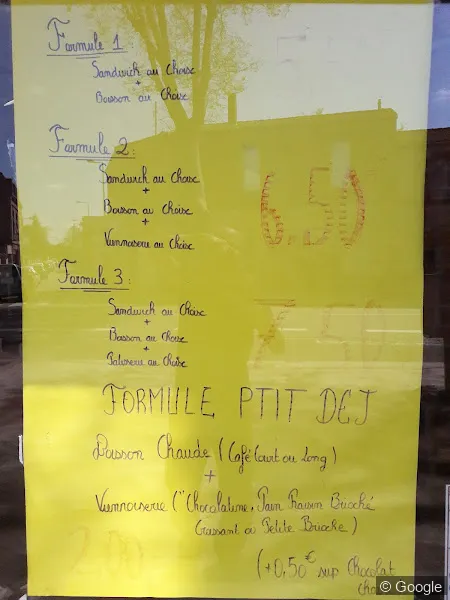 Formule 1
Sandwich au Choix
+
Boisson au Choix
Formule 2:
Sandwich au Choix
+
Boisson au Choix
+
Viennoiserie au Choix
6.50
Formule 3:
Sandwich au Choix
+
Boisson au Choix
+
Patisserie au Choix
7.50
FORMULE PTIT DEJ
Boisson Chaude (Café Court ou Long)
+
Viennoiserie ("Chocolatine, Pain Raisin Brioché
Croissant ou Petite Brioche)
2,00
(+0,50€ sur Chocolat
© Google